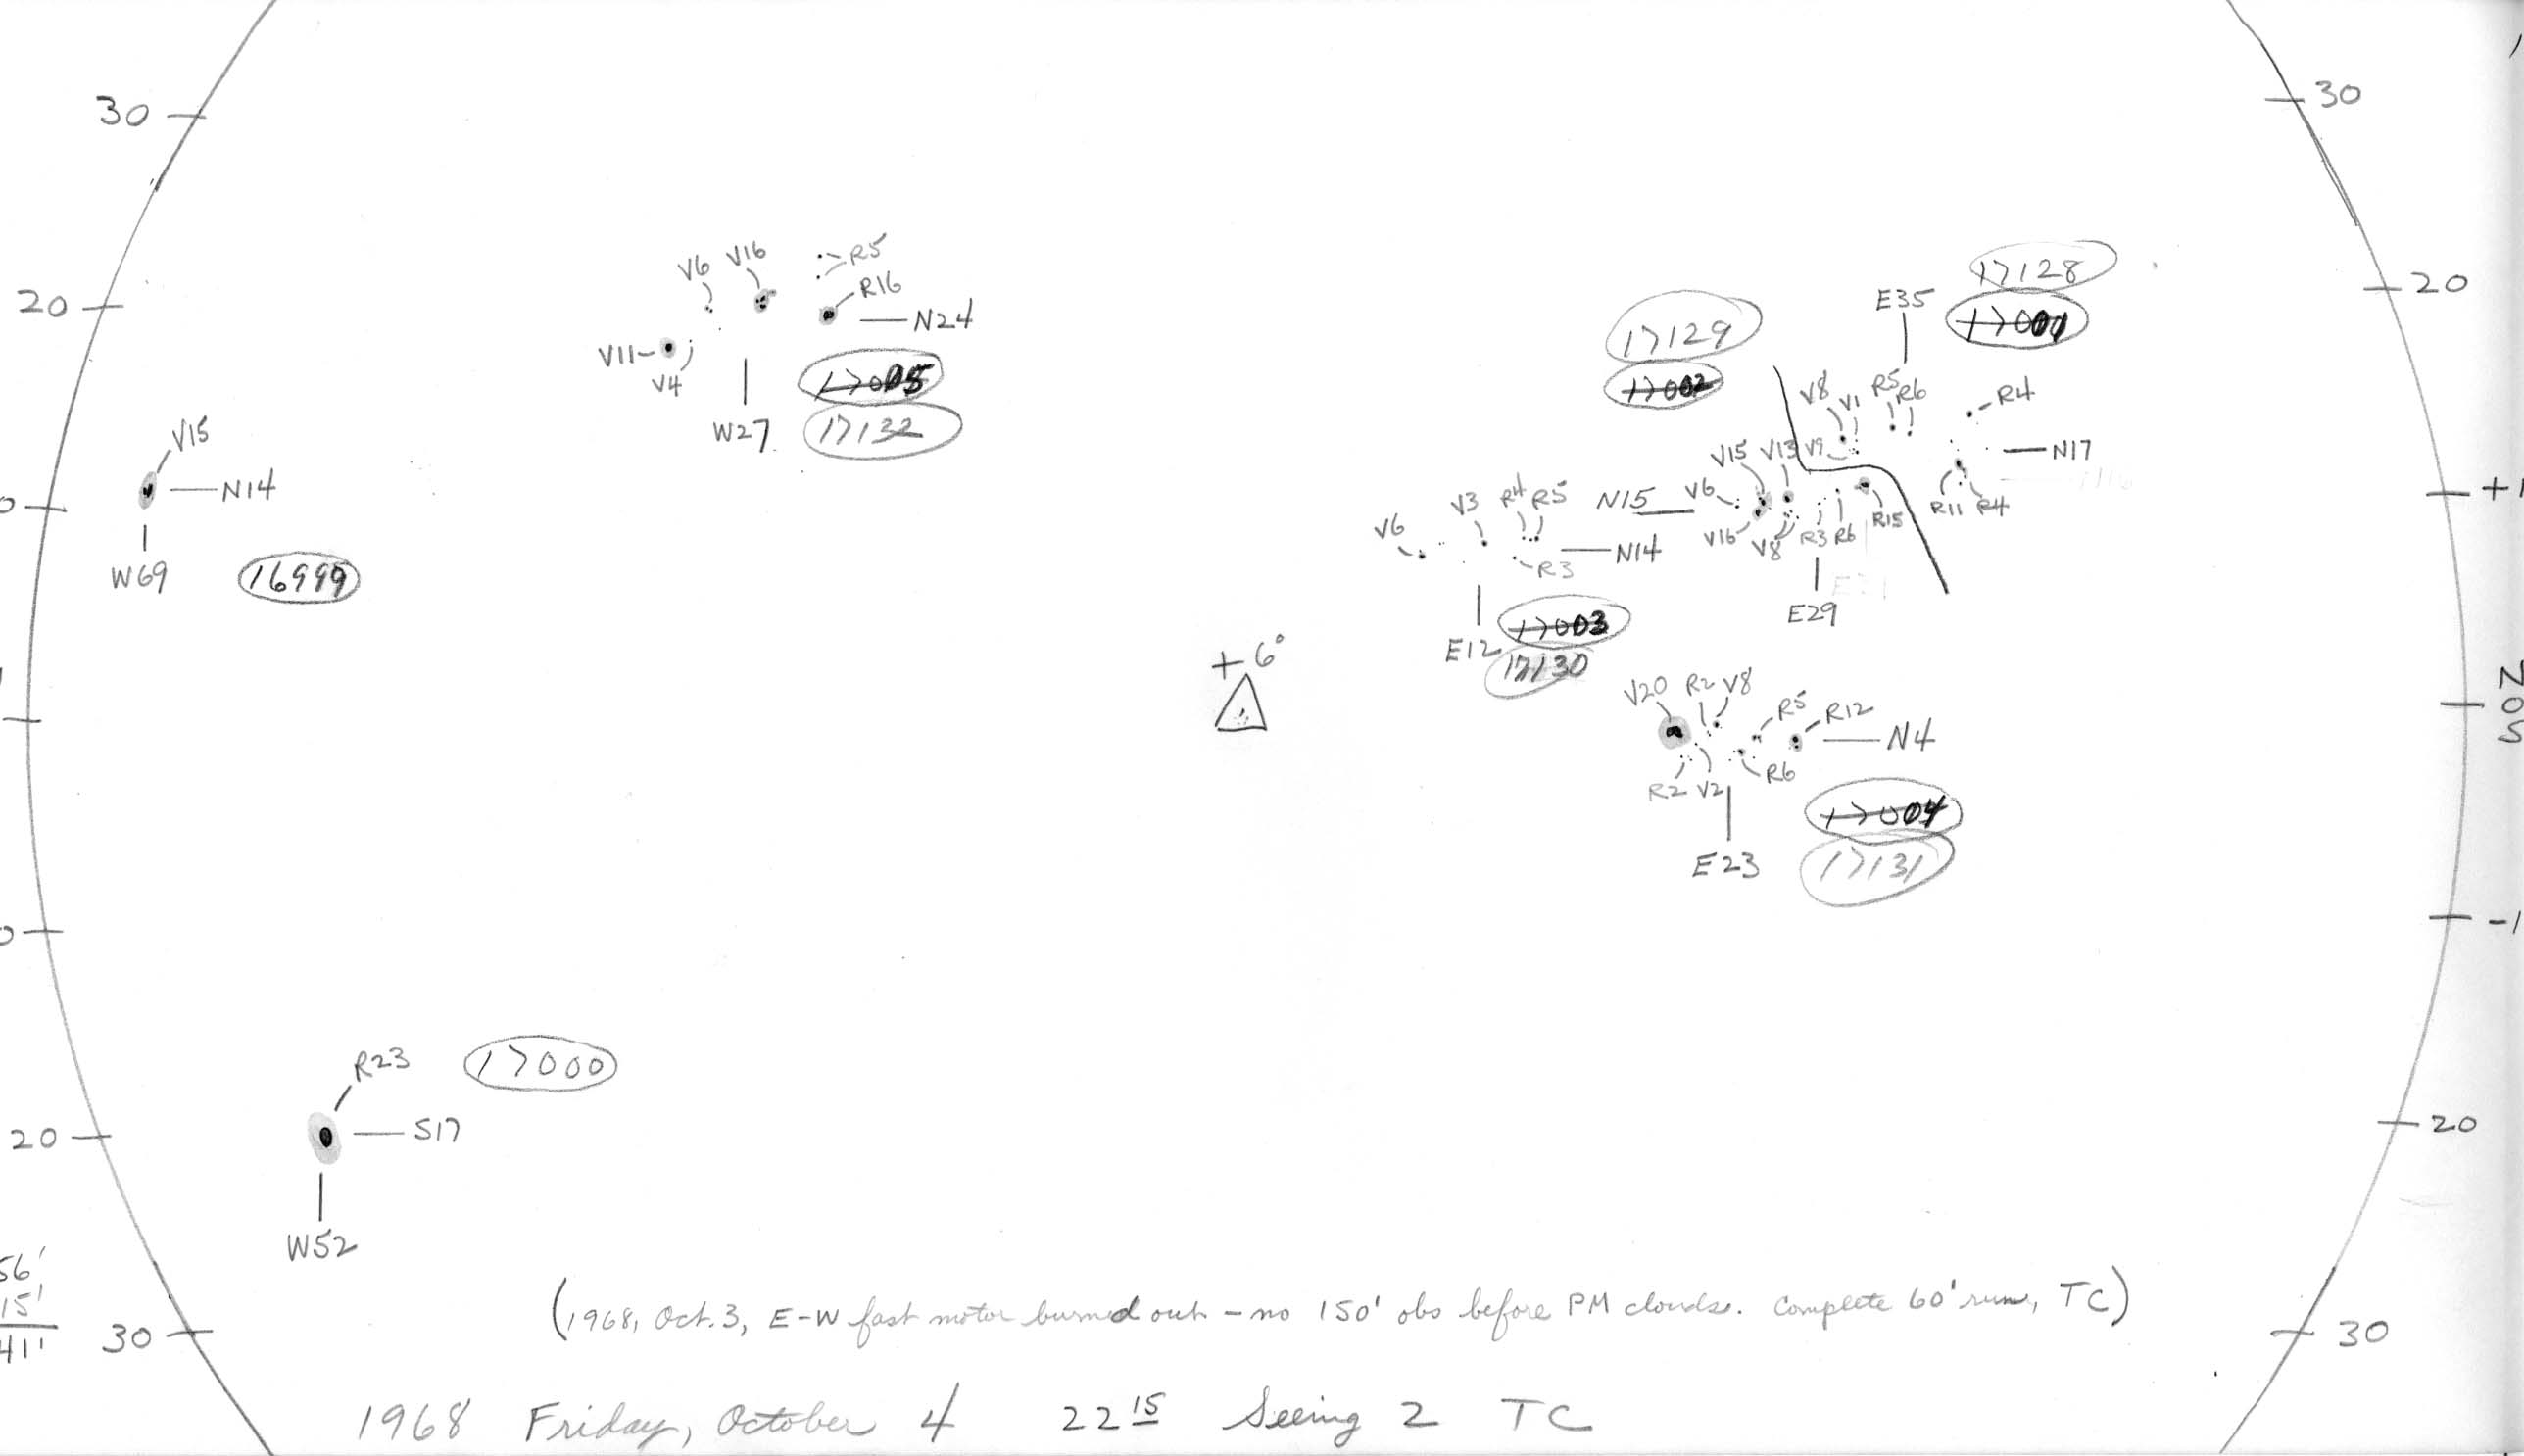 30
30
20
20
V6 V16 R5
R16
N24
V11
V4
W27
17005
17132
V15
N14
W69
16999
17128
E35
17001
17129
17002
V8 V1 R5 R6 R4
N17
V15 V13 V9
R11 R4
N15 V6
V16 V8 R3 R6 R15
E29
V6 V3 R4 R5
N14
R3
E12
17003
17130
+6°
N
0
S
V20 R2 V8 R5 R12
N4
R2 V2 R6
E23
17004
17131
+1
-1
R23
17000
20
S17
20
W52
56'
15'
41'
30
30
(1968, Oct. 3, E-W fast motor burned out – no 150' obs before PM clouds. Complete 60' runs, TC)
1968 Friday, October 4 22 15 Seeing 2 TC